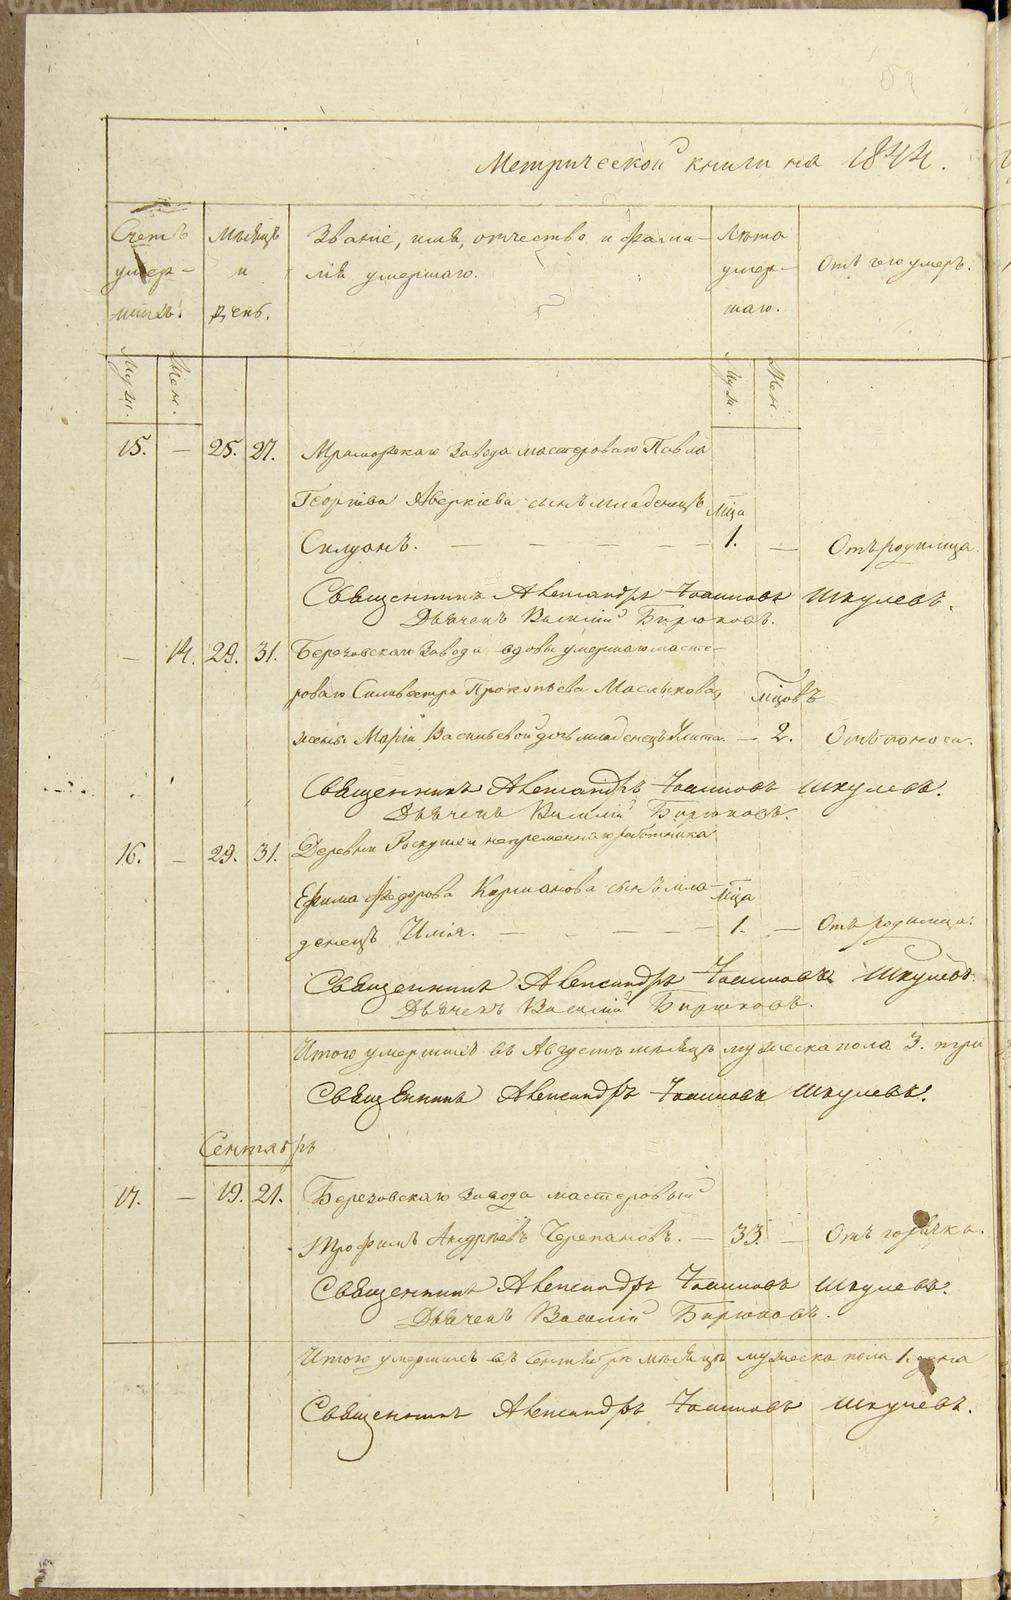 Метрической книги на 1844.
Счетъ умер-шихъ.
Мѣсяцъ и день.
Званіе, имя, отчество и фами-
лія умершаго.
Лѣта умер-шаго.
Отъ чего умеръ.
Муж. Жен. Муж. Жен.
15. — 25. 27. Мраморскаго завода мастероваго Павла
Георгіева Аверкіева сынъ младенецъ мца
Силуанъ. — — — — — 1. — Отъ родимца.
Священникъ Александръ Іоанновъ Шкулевъ.
Дьячекъ Василій Бирюковъ.
— 14. 29. 31. Березовскаго завода вдовы умершаго масте-
роваго Сильвестра Прокопьева Маслыкова, мцовъ
жены Маріи Васильевой дочь младенецъ Улита. — 2. Отъ поноса.
Священникъ Александръ Іоанновъ Шкулевъ.
Дьячекъ Василій Бирюковъ.
16. — 29. 31. Деревни непременнаго работника
Ефима Федорова сынъ мла- мца
денецъ Илія. — — — — 1. — Отъ родимца.
Священникъ Александръ Іоанновъ Шкулевъ.
Дьячекъ Василій Бирюковъ.
Итого умершихъ въ Августѣ мѣсяцѣ мужеска пола 3. три
Священникъ Александръ Іоанновъ Шкулевъ.
Сентябрь
17. — 19. 21. Березовскаго завода мастеровый
Трофимъ Андреевъ Черепановъ. — 33. — Отъ горячки.
Священникъ Александръ Іоанновъ Шкулевъ.
Дьячекъ Василій Бирюковъ.
Итого умершихъ въ Сентябрѣ мѣсяцѣ мужеска пола 1.
Священникъ Александръ Іоанновъ Шкулевъ.
METRIKI.GASO-URAL.RU